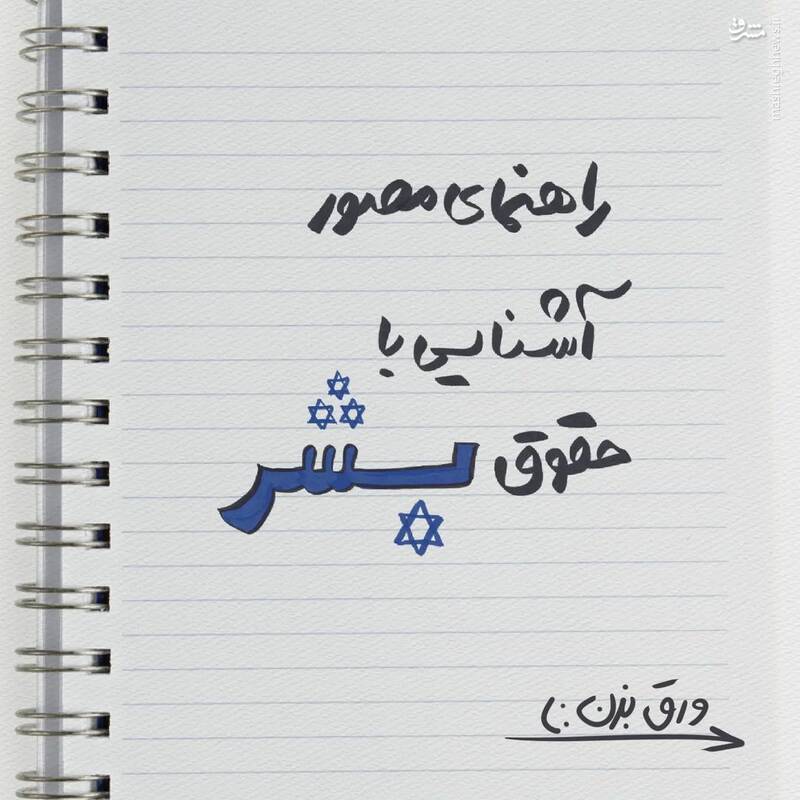 مشرق
mashreghnews.ir
راهنمای مصور
آشنایی با
حقوق بشر
ورق بزن :)